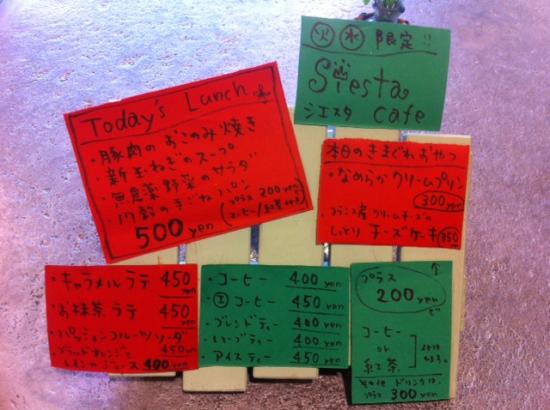 火 水 限定!!
Siesta
シエスタ cafe
Today's Lunch
・豚肉のおこのみ焼き
・新玉ねぎのスープ
・無農薬野菜のサラダ
・内麦の手ごねパン
500 yen
プラス 200 yen
(コーヒー/紅茶付き)
本日のきまぐれおやつ
・なめらかクリームプリン
300 yen
・フランス産クリームチーズの
しっとりチーズケーキ 350
・キャラメルラテ 450 yen
・お抹茶ラテ 450 yen
・パッションフルーツソーダ
450 yen
・ブラッドオレンジと
レモンのジュース 400 yen
・コーヒー 400 yen
・コーヒー 450 yen
・ブレンドティー 400 yen
・ハーブティー 400 yen
・アイスティー 450 yen
プラス
200 yen
で
コーヒー
or
紅茶
その他ドリンクは
プラス 300 yen